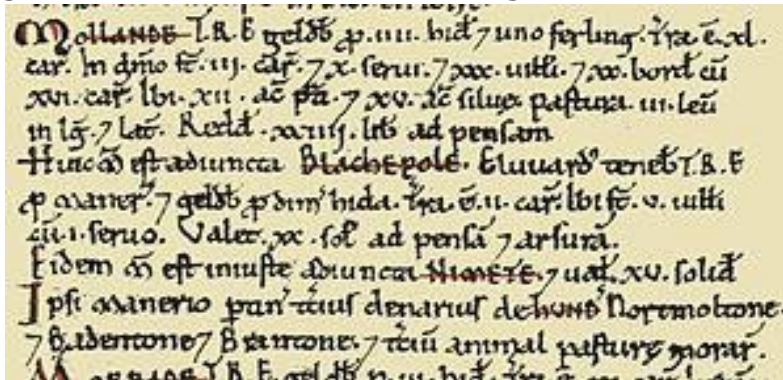 Mollande T.R.E geldb p. iiii. hid 7 uno ferling. Tra. e. xl.
car. In dmo st. iii. car. 7 x. serui. 7 xxx. uilli. 7 xx. bord cu
xvi. car. Ibi. xii. ac pti. 7 xv. ac silue. pastura. iii. leu
in lg. 7 lat. Redd. xxiiij. lib ad pensam
Huic M est adiuncta Blachepole. Eluuard teneb T.R.E
p maner. 7 geldb p dim hida. Tra. e. ii. car. Ibi st. v. uilli
cu. i. seruo. Valet. xx. sol ad pensa 7 arsura.
Eidem M est iniuste adiuncta Nimete. 7 ual. xv. solid
Ipsi Manerio ptin tcius denarius de hund Nortmoltone.
7 Badentone 7 Brantone. 7 tciu animal pasture morar.